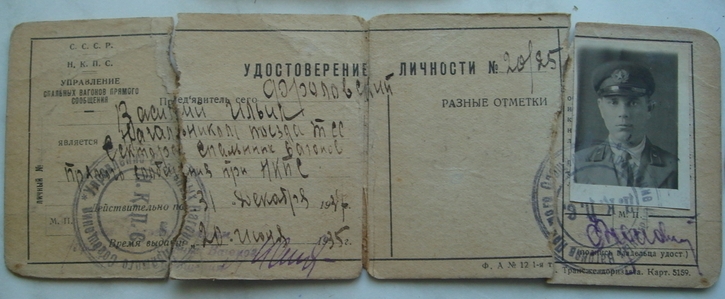 С. С. С. Р.
Н. К. П. С.
УПРАВЛЕНИЕ
СПАЛЬНЫХ ВАГОНОВ ПРЯМОГО
СООБЩЕНИЯ
УДОСТОВЕРЕНИЕ ЛИЧНОСТИ № 20/25
Пред'явитель сего
Василий Ильич
является начальником поезда
Сектора Спальных Вагонов
Прямого сообщения при НКПС
Действительно по 31 декабря 193
М. П.
Время выдачи 20 июня 1935г.
ЛИЧНЫЙ №
РАЗНЫЕ ОТМЕТКИ
Ф. А № 12 1-я т
М. П.
(подпись владельца удост.)
Трансжелдориздата. Карт. 5159.